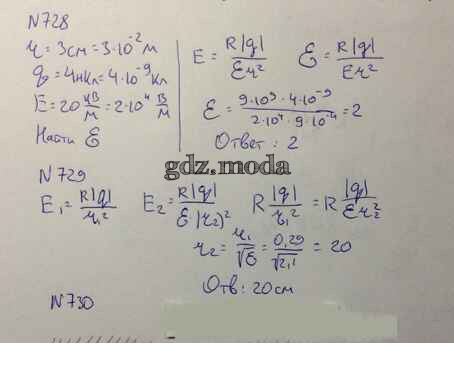 N728
r = 3см = 3·10⁻² м
q = 4нКл = 4·10⁻⁹ Кл
E = 20 кВ/м = 2·10⁴ В/м
Найти ε
E = k|q|/εr²   ε = k|q|/Er²
ε = 9·10⁹·4·10⁻⁹/2·10⁴·9·10⁻⁴ = 2
Ответ: 2
gdz.moda
N729
E₁ = k|q|/r₁²   E₂ = k|q|/ε(r₂)²   k |q|/r₁² = k |q|/εr₂²
r₂ = r₁/√ε = 0,29/√2,1 = 20
Отв: 20см
N730